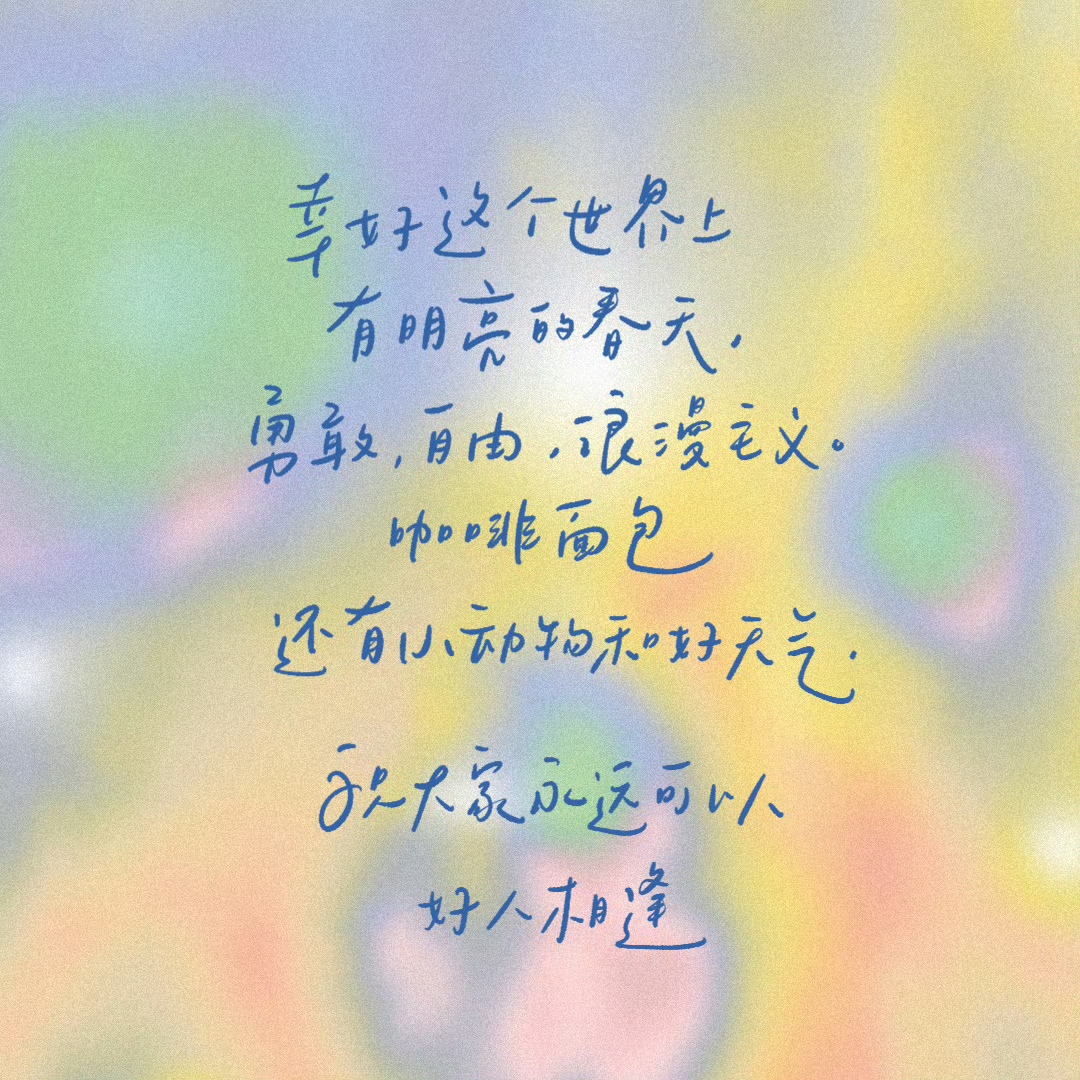 幸好这个世界上
有明亮的春天，
勇敢，自由，浪漫主义。
咖啡面包
还有小动物和好天气.
祝大家永远可以
好人相逢